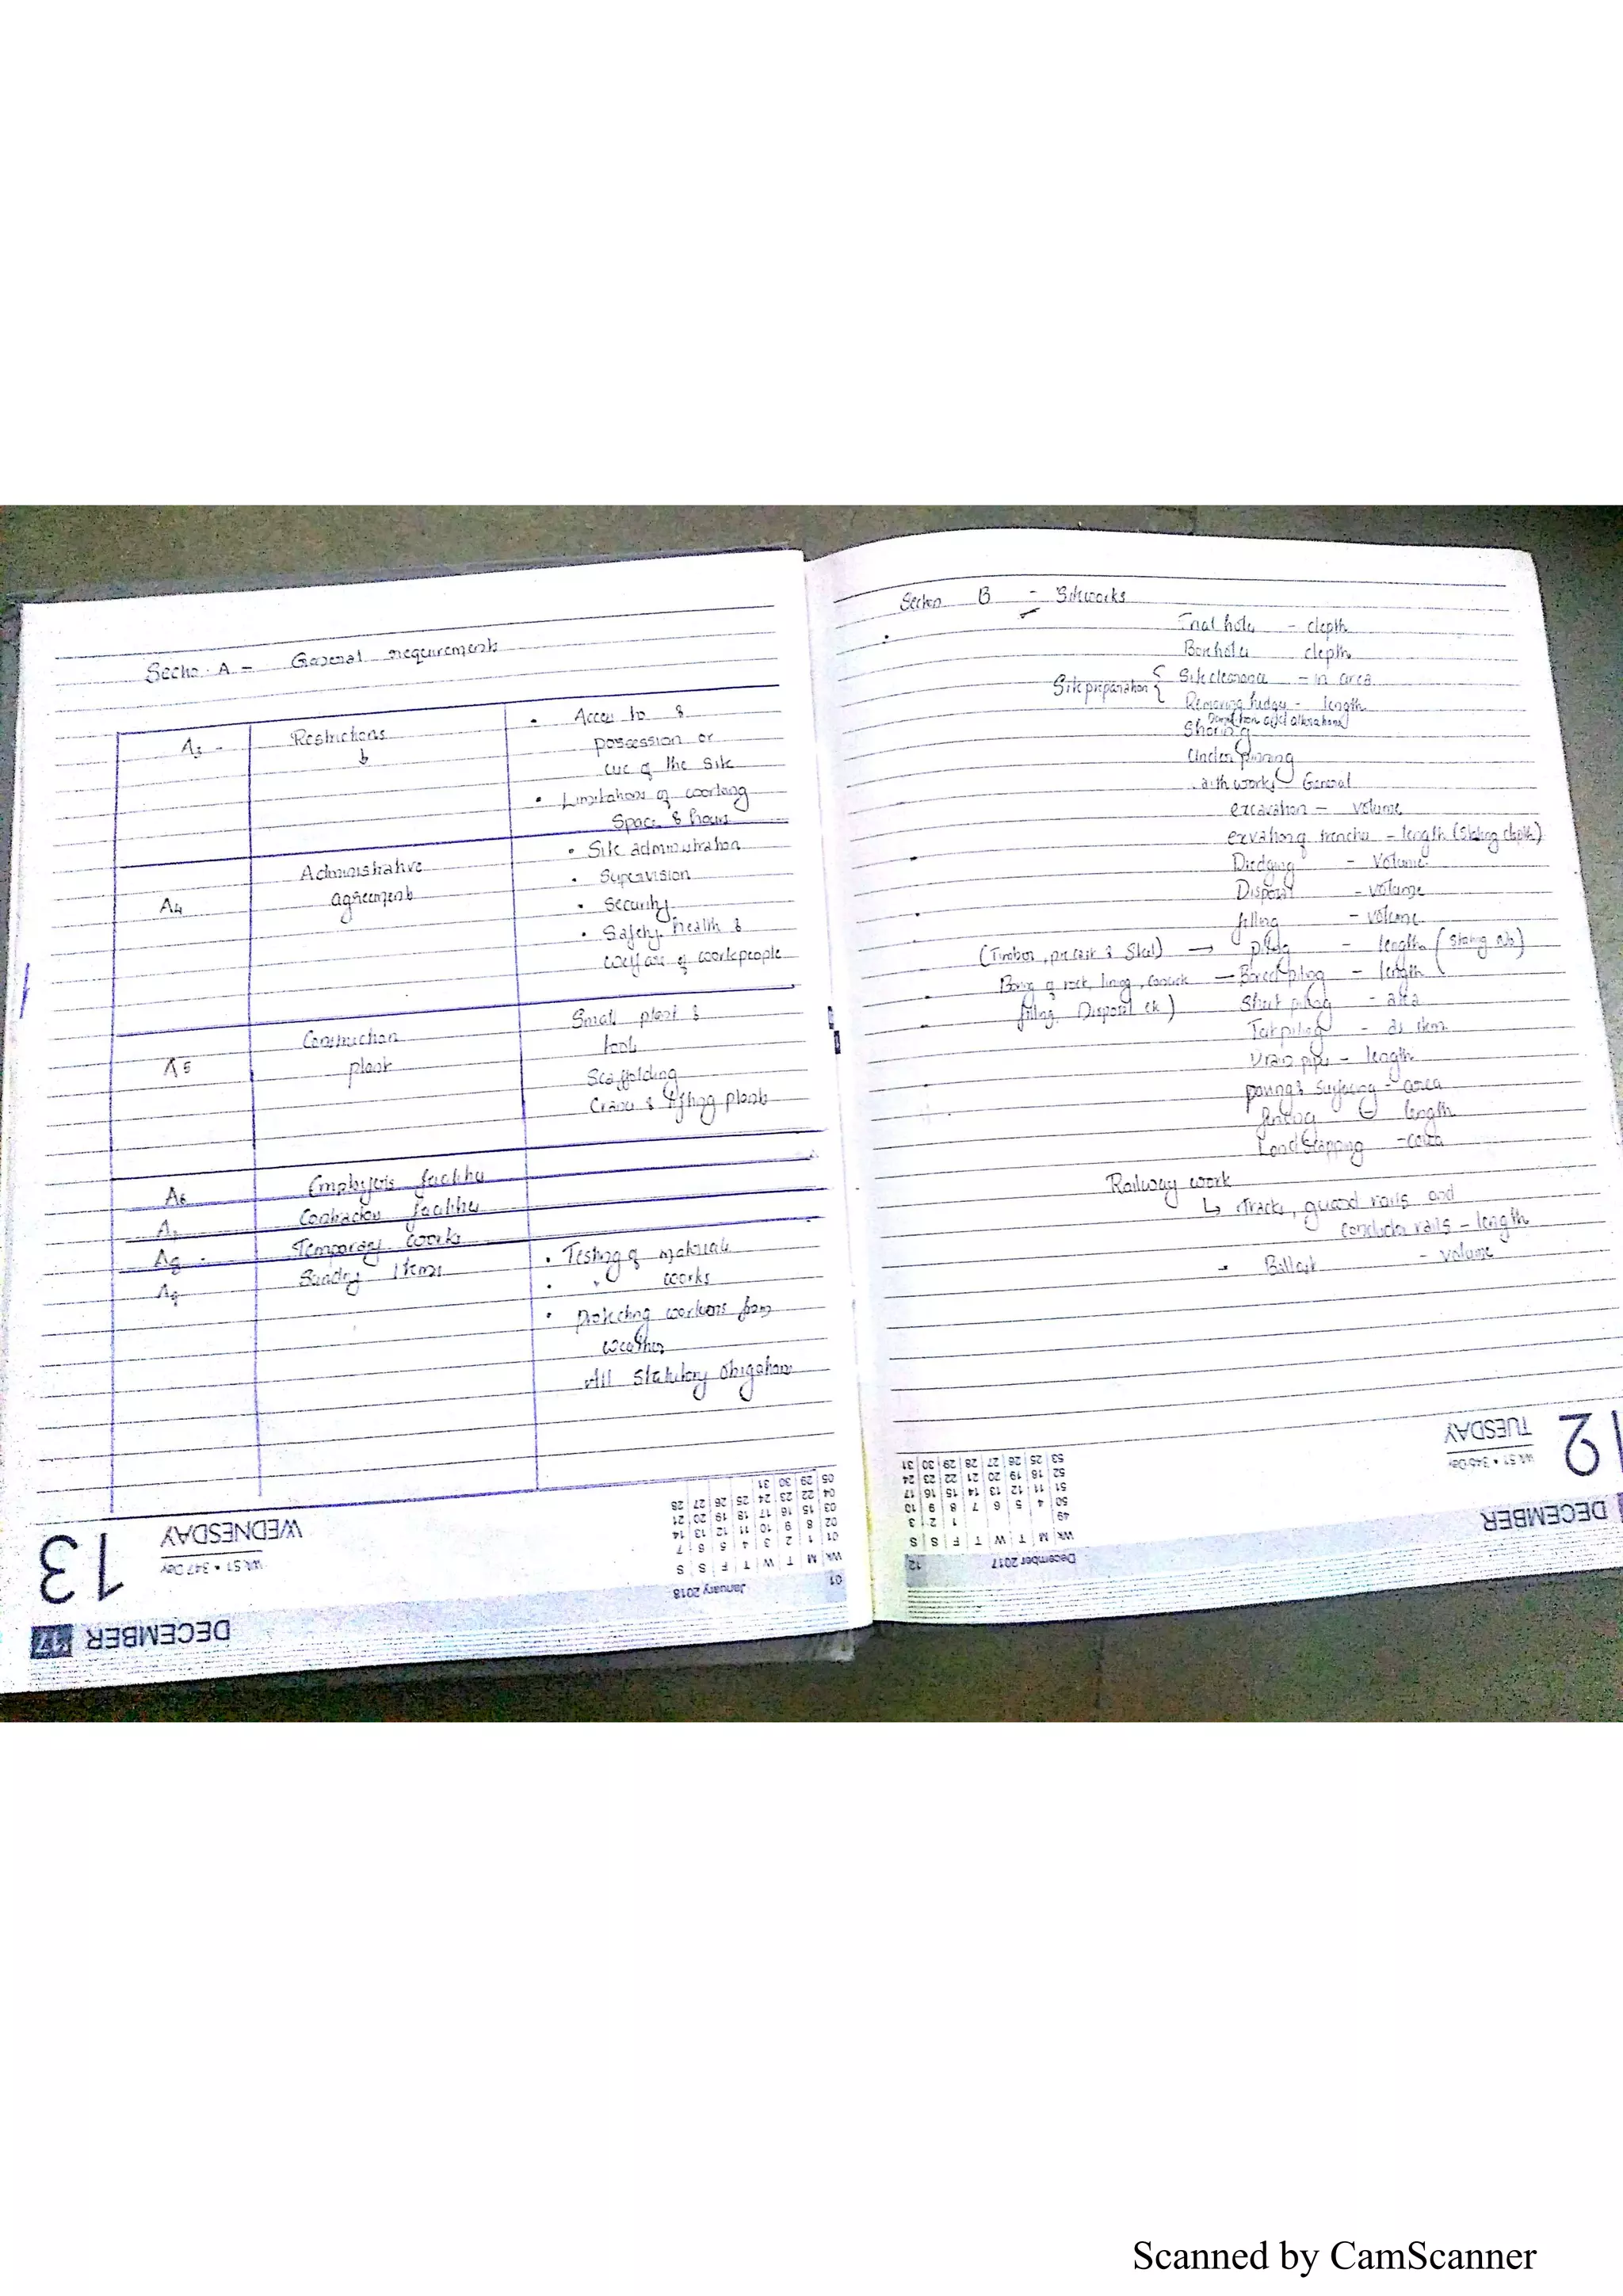 Section A - General requirements
A3 - Restrictions
• Access to &
possession or
use of the site
• Limitations of working
space & hours
A4 Administrative
agreements
• Site administration
• Supervision
• Security
• Safety, health &
welfare of workpeople
A5 Construction
plant
Small plant &
tools
Scaffolding
Cranes & lifting plants
A6 Employers facilities
A7 Contractors facilities
A8 - Temporary works
A9 Sundry Items
• Testing of materials
• " works
• protecting workers from
weather
All statutory obligations
13
WEDNESDAY
WK 51 • 347 Day
DECEMBER 17
01 January 2018
WK M T W T F S S
01 1 2 3 4 5 6 7
02 8 9 10 11 12 13 14
03 15 16 17 18 19 20 21
04 22 23 24 25 26 27 28
05 29 30 31
Section B - Siteworks
Trial holes - depth
Boreholes depth
Site preparation { Site clearance - in area
Removing hedges - length
Demolition and alterations
Shoring
Underpinning
Earthworks General
excavation - volume
Dredging - Volume
Disposal - volume
filling - volume
(Timber, precast & Steel) → piling - length (stating nb)
Boring of rock, lining, concrete - Bored piling - length
filling Disposal etc) Sheet piling - area
Test piling - as item
Drain pipes - length
paving & surfacing - area
fencing - length
Landscapping - area
Railway work
↳ Tracks, guard rails and
conductor rails - length
• Ballast - volume
12
TUESDAY
WK 51 • 346 Day
DECEMBER
12 December 2017
WK M T W T F S S
49 1 2 3
50 4 5 6 7 8 9 10
51 11 12 13 14 15 16 17
52 18 19 20 21 22 23 24
53 25 26 27 28 29 30 31
Scanned by CamScanner